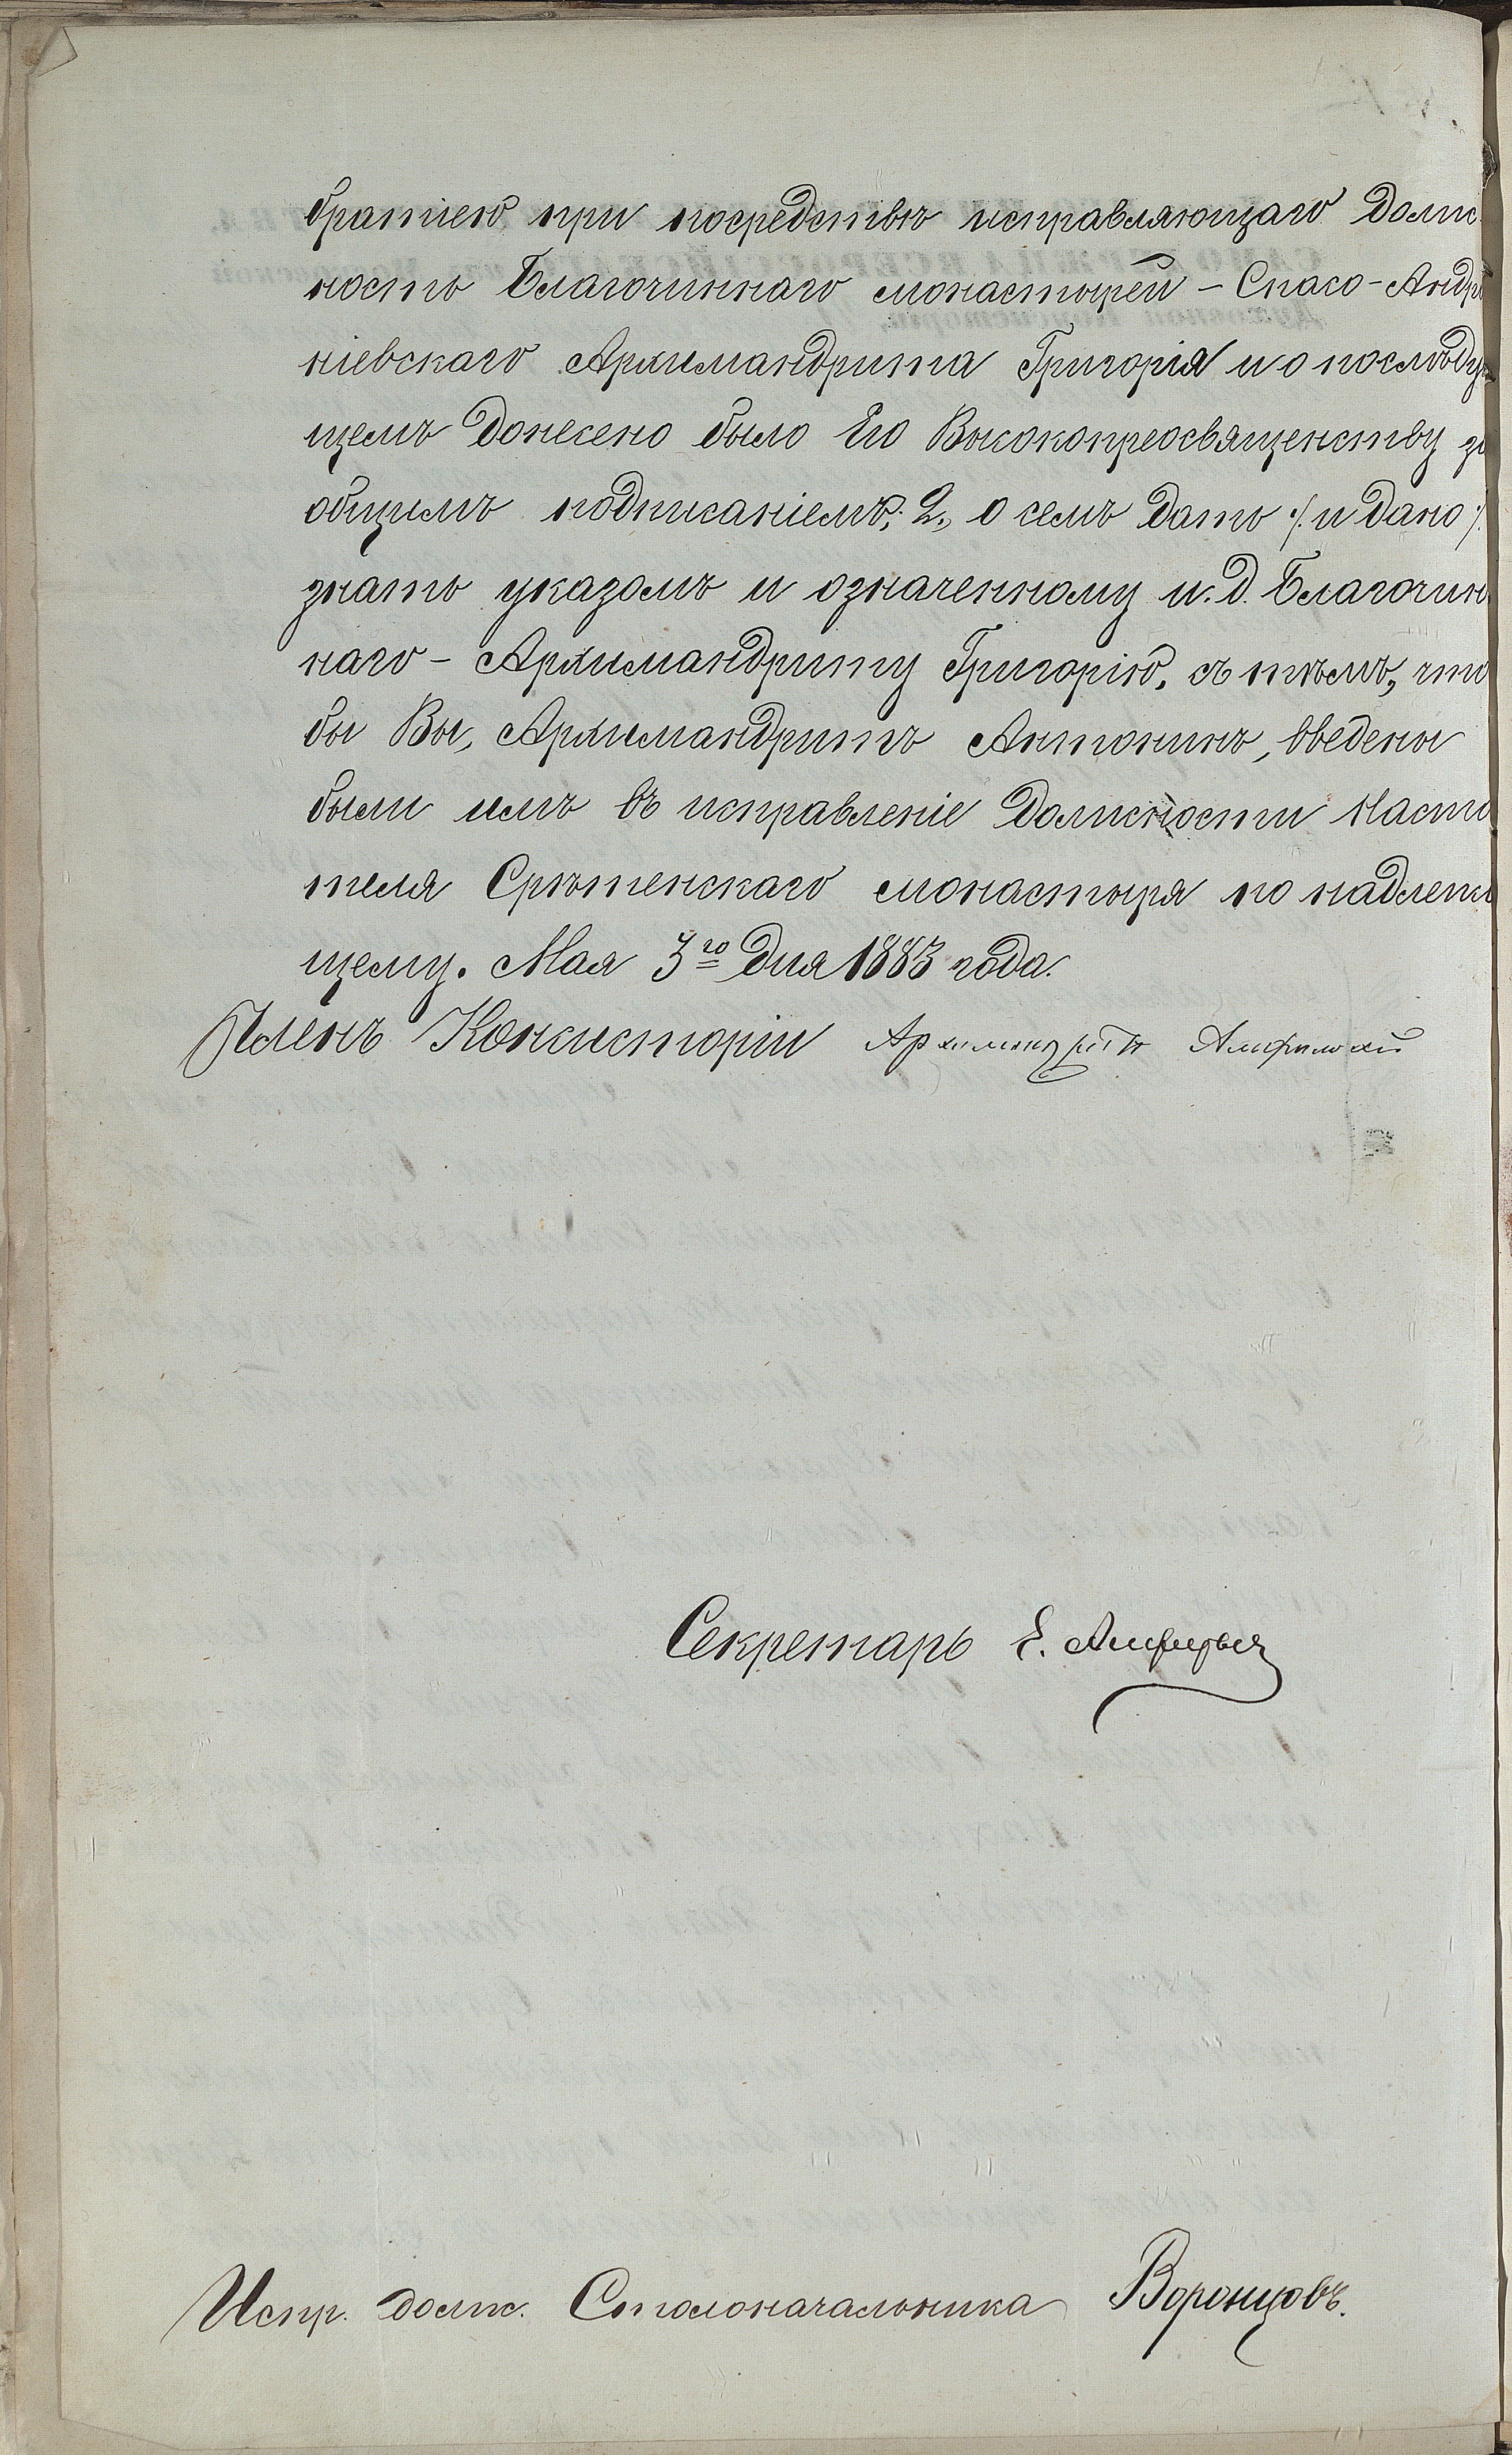 братіею при посредствѣ исправляющаго долж
ность Благочиннаго монастырей - Спасо-Андро
ніевскаго Архимандрита Григорія и о послѣдую
щемъ донесено было Его Высокопреосвященству за
общимъ подписаніемъ; 2., о семъ дать /. и дано /.
знать указомъ и означенному и. д. Благочин
наго - Архимандриту Григорію, съ тѣмъ, что
бы Вы, Архимандритъ Антонинъ, введены
были имъ въ исправленіе должности Насто
теля Срѣтенскаго монастыря по надлежа
щему. Мая 3го дня 1883 года.
Членъ Консисторіи Архимандритъ Амфилохій
Секретарь Е.
Испр. долж. Столоначальника Воронцовъ.